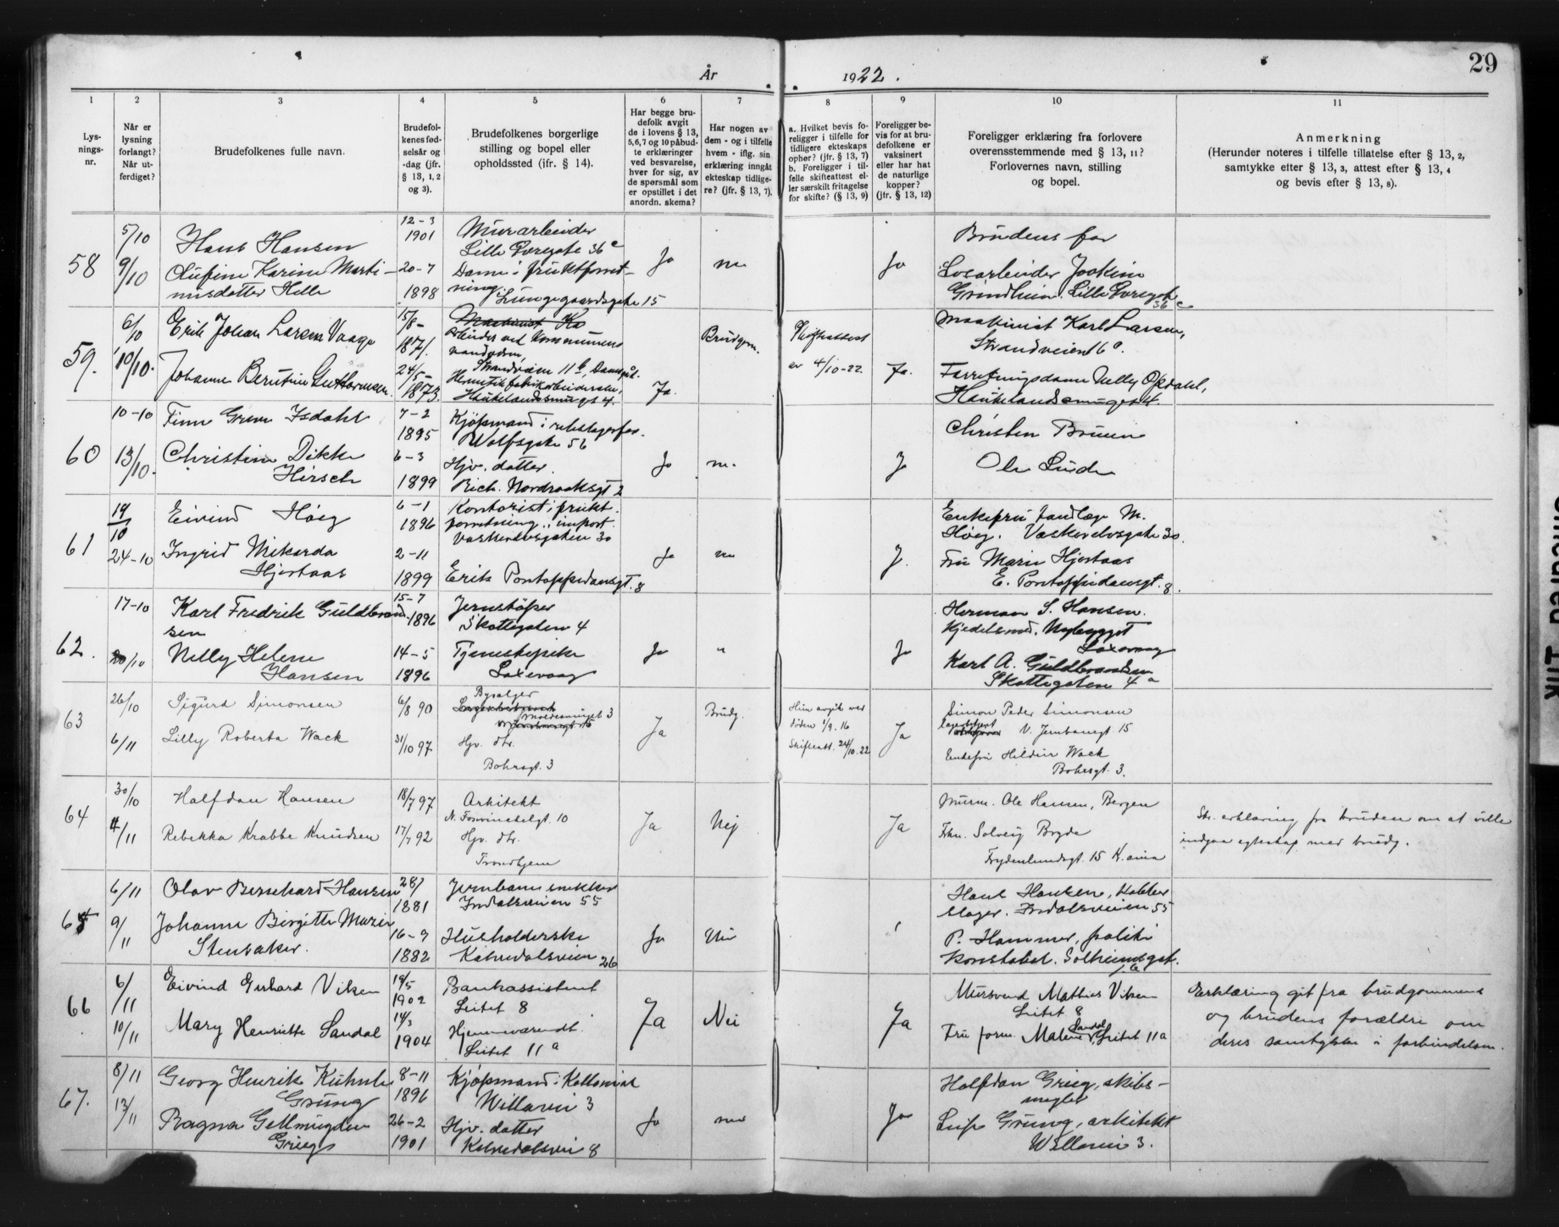 29
År 1922.
1 2 3 4 5 6 7 8 9 10 11
Lys-
nings-
nr.
Når er
lysning
forlangt?
Når ut-
ferdiget?
Brudefolkenes fulle navn.
Brudefol-
kenes fød-
selsår og
-dag (jfr.
§ 13, 1, 2
og 3).
Brudefolkenes borgerlige
stilling og bopel eller
opholdssted (ifr. § 14).
Har begge bru-
defolk avgit
de i lovens § 13,
5, 6, 7 og 10 påbud-
te erklæringer
ved besvarelse,
hver for sig, av
de spørsmål som
er opstillet i det
anordn. skema?
Har nogen av
dem - og i tilfelle
hvem - iflg. sin
erklæring inngått
ekteskap tidlige-
re? (jfr. § 13, 7).
a. Hvilket bevis fo-
religger i tilfelle for
tidligere ekteskaps
ophør? (jfr. § 13, 7)
b. Foreligger i til-
felle skifteattest el-
ler særskilt fritagelse
for skifte? (§ 13, 9)
Foreligger be-
vis for at bru-
defolkene er
vaksinert
eller har hat
de naturlige
kopper?
(jfr. § 13, 12)
Foreligger erklæring fra forlovere
overensstemmende med § 13, 11?
Forlovernes navn, stilling
og bopel.
Anmerkning
(Herunder noteres i tilfelle tillatelse efter § 13, 2,
samtykke efter § 13, 3, attest efter § 13, 4
og bevis efter § 13, 8).
58
5/10
9/10
Hans Hansen
Olufine Karine Marti-
nusdatter Helle
12-3
1901
20-7
1898
Murarbeider
Lille Øvregate 36 c
Dame i fruktforret-
ning, Lungegaardsgate 15
Ja
nei
Ja
Brudens far
Losarbeider Joakim
Grindheim, Lille Øvregt
36 c
59.
6/10
10/10.
Erik Johan Larsen Vaage
Johanne Berntine Guttormsen
15/8-
1871.
24/5-
1873
Arbeider ved Kommunens
Strandveien 11 b, Damsgd.
Hermetikfabrikarbeiderske,
Haukelandsmugt 4.
Ja.
Brudgom.
Skifteattest
er 4/10-22.
Ja.
Maskinist Karl Larsen,
Strandveien 6 a.
Forretningsdame Nelly Opdahl,
Haukelandsmuget 4.
60
10-10
13/10.
Finn Greve Isdahl
Christine Dikka
Hirsch
7-2
1895
6-3
1899
Kjøpmand i
Wolfsgate 56
Hjv. datter.
Rich. Nordraaksgt 2
Ja
nei
Ja
Christen Bruun
Ole Linde
61
19
10
24-10
Eivind Høeg
Ingrid Mikarda
Hjertaas
6-1
1896
2-11
1899
Kontorist i frukt.
forretning, import.
Vaskerelvsgaten 30
Erik Pontoppidansgt. 8
Ja
nei
J.
Enkefru tandlæge M.
Høeg. Vaskerelvsgate 30.
Fru Marie Hjertaas
E. Pontoppidansgt. 8.
62.
17-10
20/10
Karl Fredrik Guldbrand-
sen
Nelly Helene
Hansen
15-7
1896
14-5
1896
Jernstøper
Skottegaten 4
Tjenestepike
Laxevaag
Ja
"
Ja
Herman S. Hansen.
Kjedelsmed. Nybygget
Laxevaag
Karl A. Guldbrandsen
Skottegaten 4 a
63
26/10
6/11
Sigurd Simonsen
Lilly Roberta Wack
6/8 90
31/10 97
Bysælger
Hjv. dtr.
Bohrsgt. 3
Ja
Brudg.
Hun avgik ved
døden 1/9. 16
Skifteatt. 24/10.22
Ja
Simon Peder Simonsen
V. Jernbanegt 15
Enkefru Hildur Wack
Bohrsgt 3.
64
30/10
4/11
Halfdan Hansen
Rebekka Krabbe Knudsen
18/7 97
17/7 92
Arkitekt
10
Hjv. dtr.
Trondhjem
Ja
Nej
Ja
Murm. Ole Hansen, Bergen
Frkn. Solveig Brydø
Frydenlundsgt. 15 K.ania
Skr. erklæring fra bruden om at ville
indgaa egteskap med brudg.
65
6/11
9/11
Olav Bernhard Hansen
Johanne Birgitte Marie
Stensaker.
28/
1881
16-9
1882
Jernbanesnekker
Indalsveien 55
Husholderske
Kalvedalsveien 26
Ja
Nei
Hans Hansen, Kobber-
slager. Indalsveien 55
P. Hammer, politi
konstabel. Solheimsgat.
66
6/11
10/11
Eivind Gerhard Viken
Mary Henriette Sandal
14/5
1902
14/3
1904
Bankassistent
Leitet 8
Hjemmeværendt.
Leitet 11 a
Ja
Nei
Ja
Mursvend Mathias Viken
Leitet 8
Fru form. Malene Sandal, Leitet 11 a
Erklæring git fra brudgommens
og brudens forældre om
deres samtykke i forbindelsen.
67.
8/11
13/11
Georg Henrik Kuhnle
Grung
Ragna Gellmuyden
Grieg
8-11
1896
26-2
1901
Kjøpmand i Kolonial
Willavei 3
Hjv. datter
Kalvedalsvei 8
Ja
nei
Ja
Halfdan Grieg, skibs-
megler
Leif Grung, arkitekt
Willavei 3.